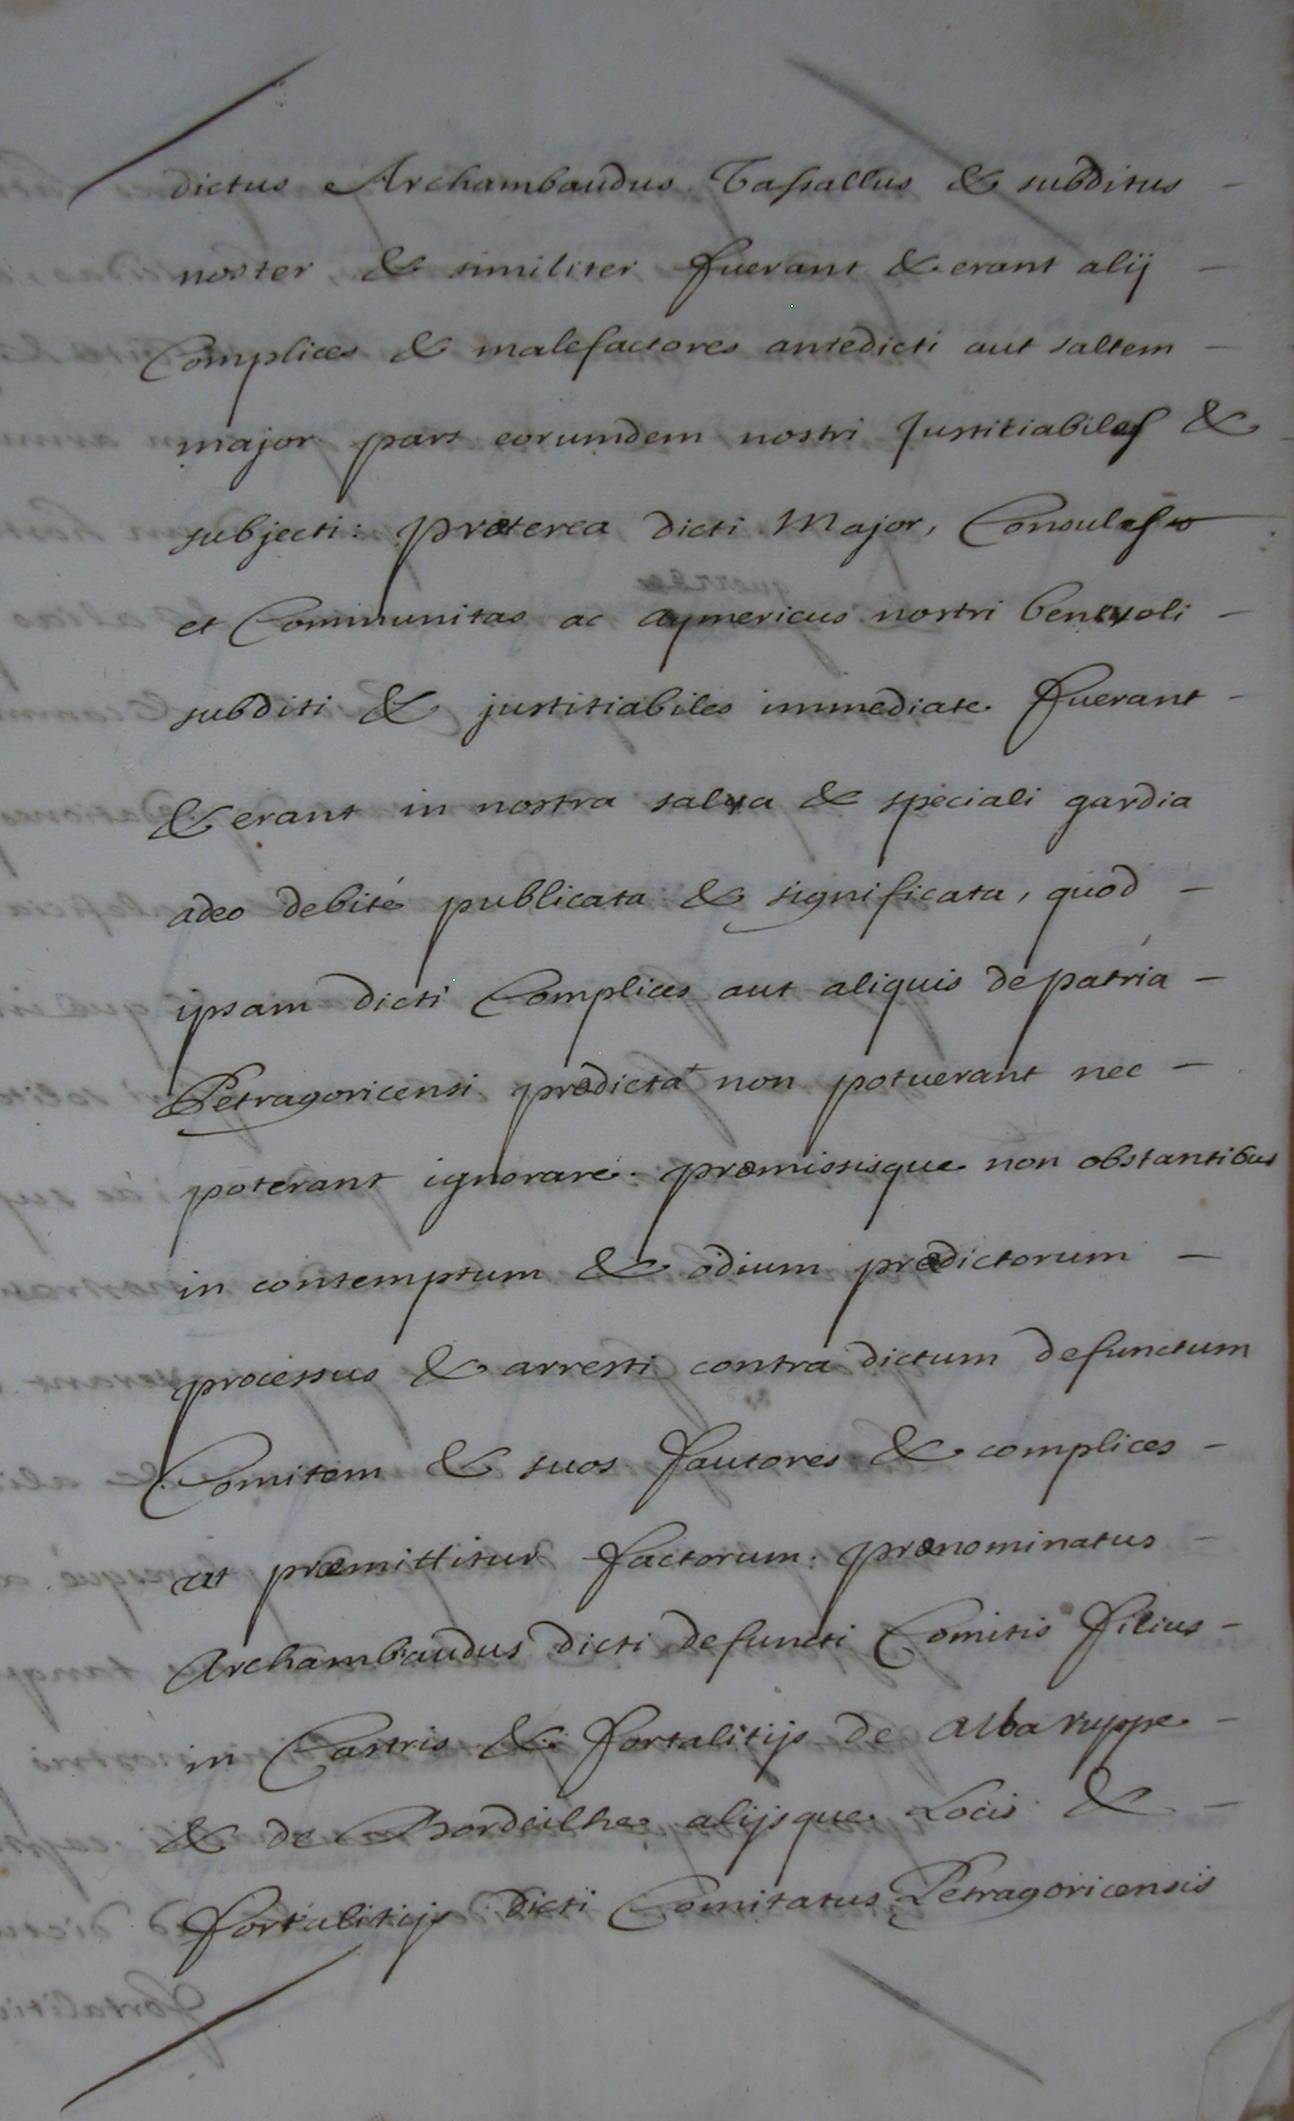 dictus Archambaudus Vassallus & subditus -
noster & similiter fuerant & erant alij -
Complices & malefactores antedicti aut saltem -
major pars eorumdem nostri Justitiabiles &
subjecti: præterea dicti Major, Consules
et Communitas ac aymericus nostri benevoli -
subditi & justitiabiles immediate fuerant -
& erant in nostra salva & speciali gardia
adeo debité publicata & significata, quod -
ipsam dicti Complices aut aliquis de patria -
Petragoricensi prædicta non potuerant nec -
poterant ignorare: præmissisque non obstantibus
in contemptum & odium prædictorum -
processus & arresti contra dictum defunctum
Comitem & suos fautores & complices -
ut præmittitur factorum: prænominatus -
Archambaudus dicti defuncti Comitis filius -
in Castris & fortalitijs de alba ruppe -
& de Bordeilhe alijsque Locis & -
fortalitijs dicti Comitatus Petragoricensis